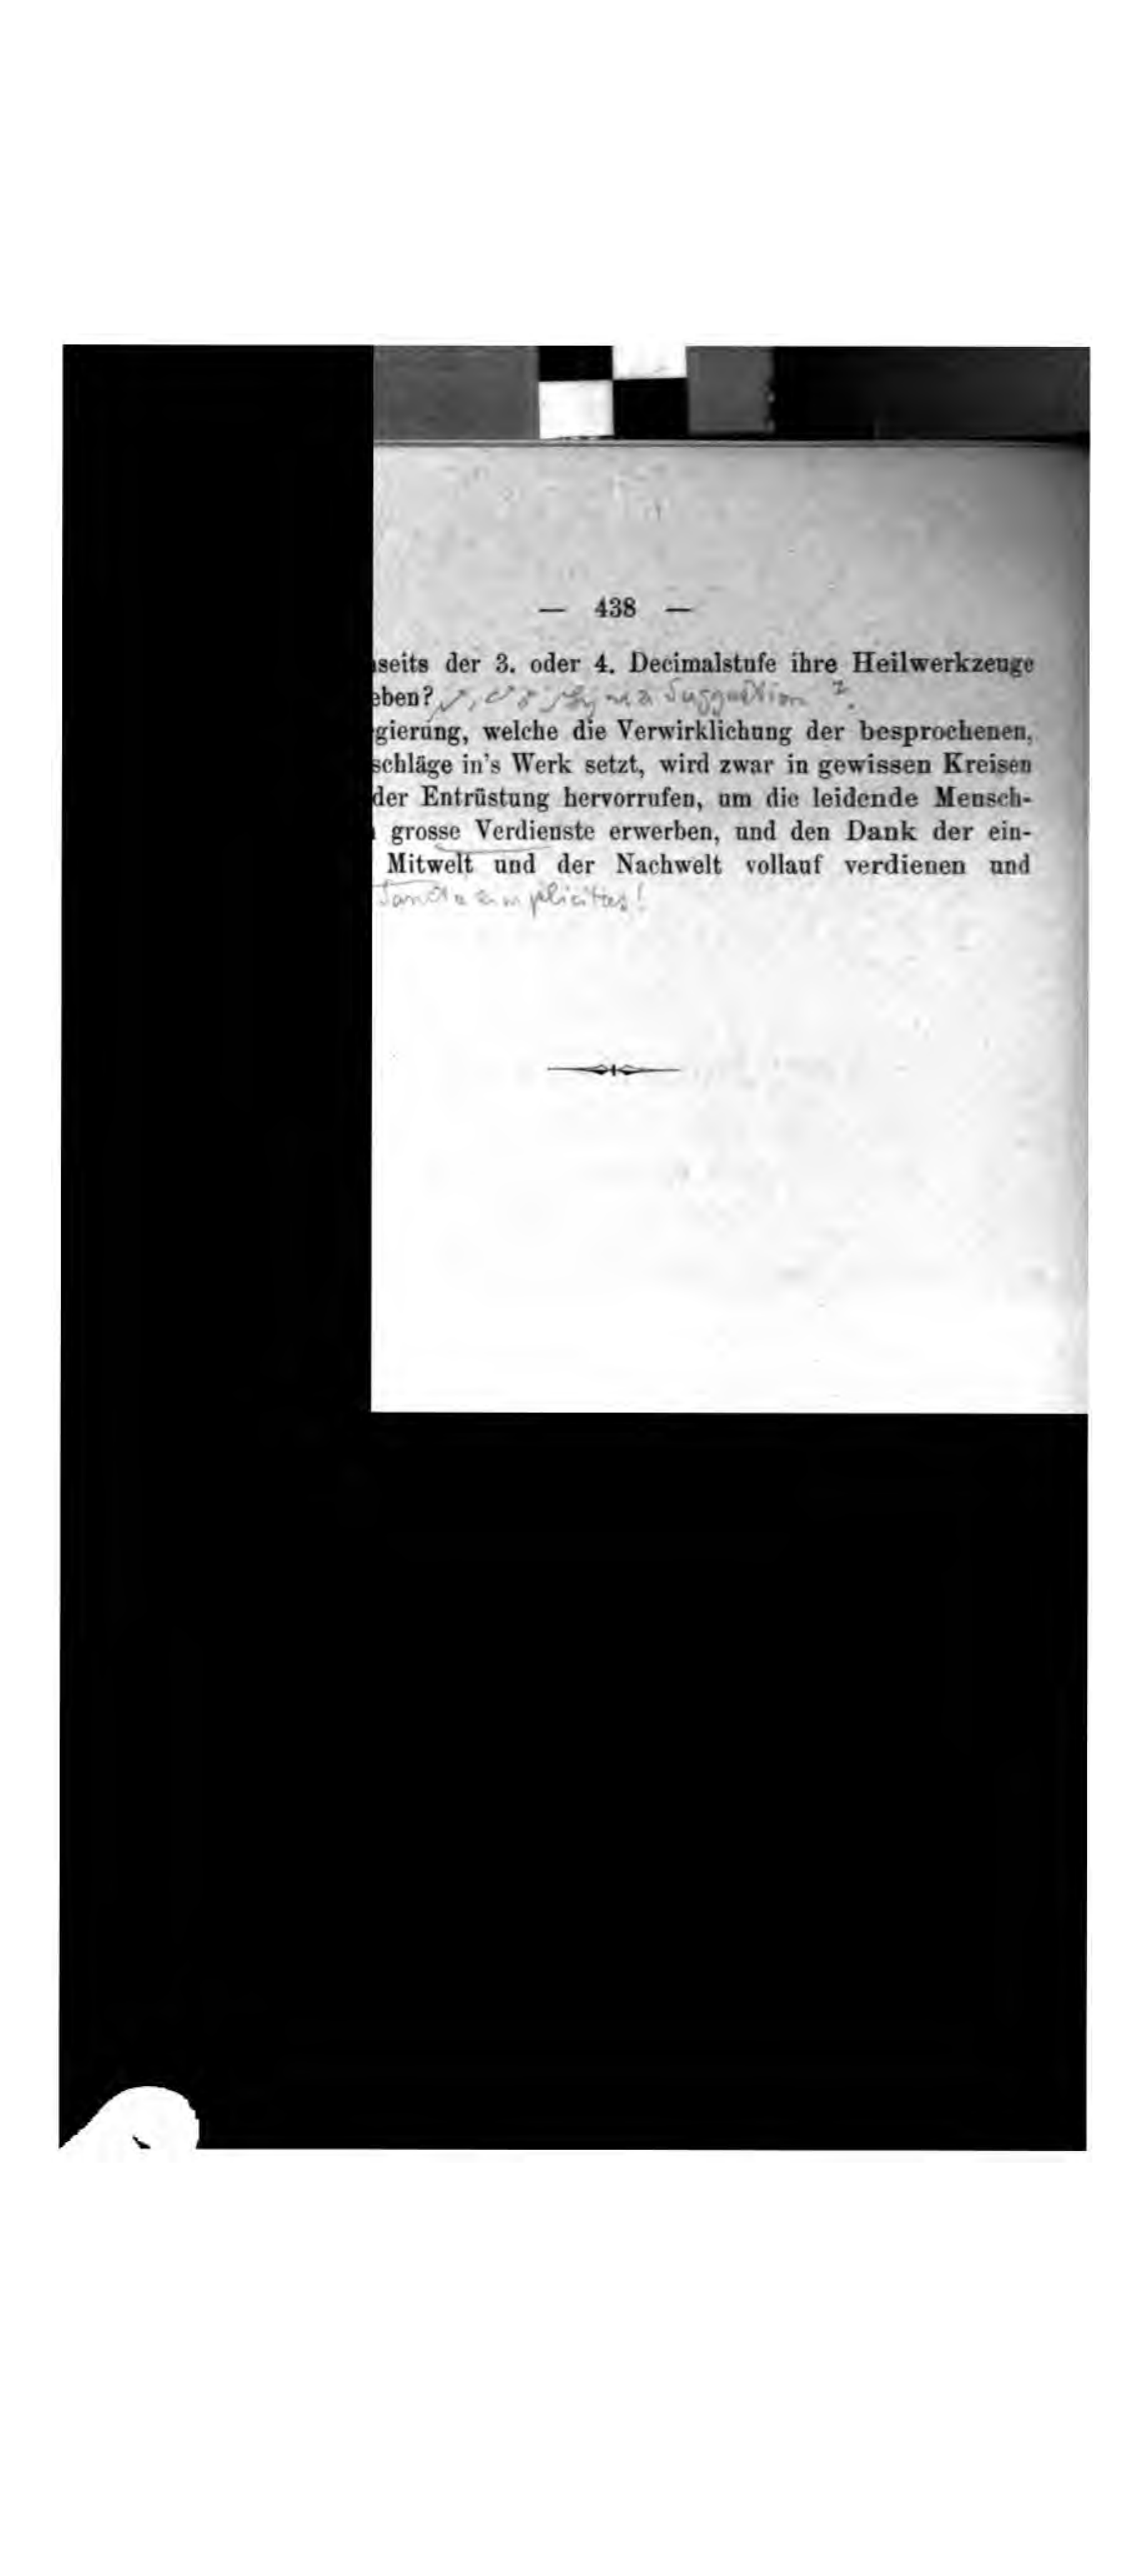 — 438 —
seits der 3. oder 4. Decimalstufe ihre Heilwerkzeuge
eben? Suggestion ?
gierung, welche die Verwirklichung der besprochenen,
schläge in's Werk setzt, wird zwar in gewissen Kreisen
der Entrüstung hervorrufen, um die leidende Mensch-
grosse Verdienste erwerben, und den Dank der ein-
Mitwelt und der Nachwelt vollauf verdienen und
Sancta simplicitas!